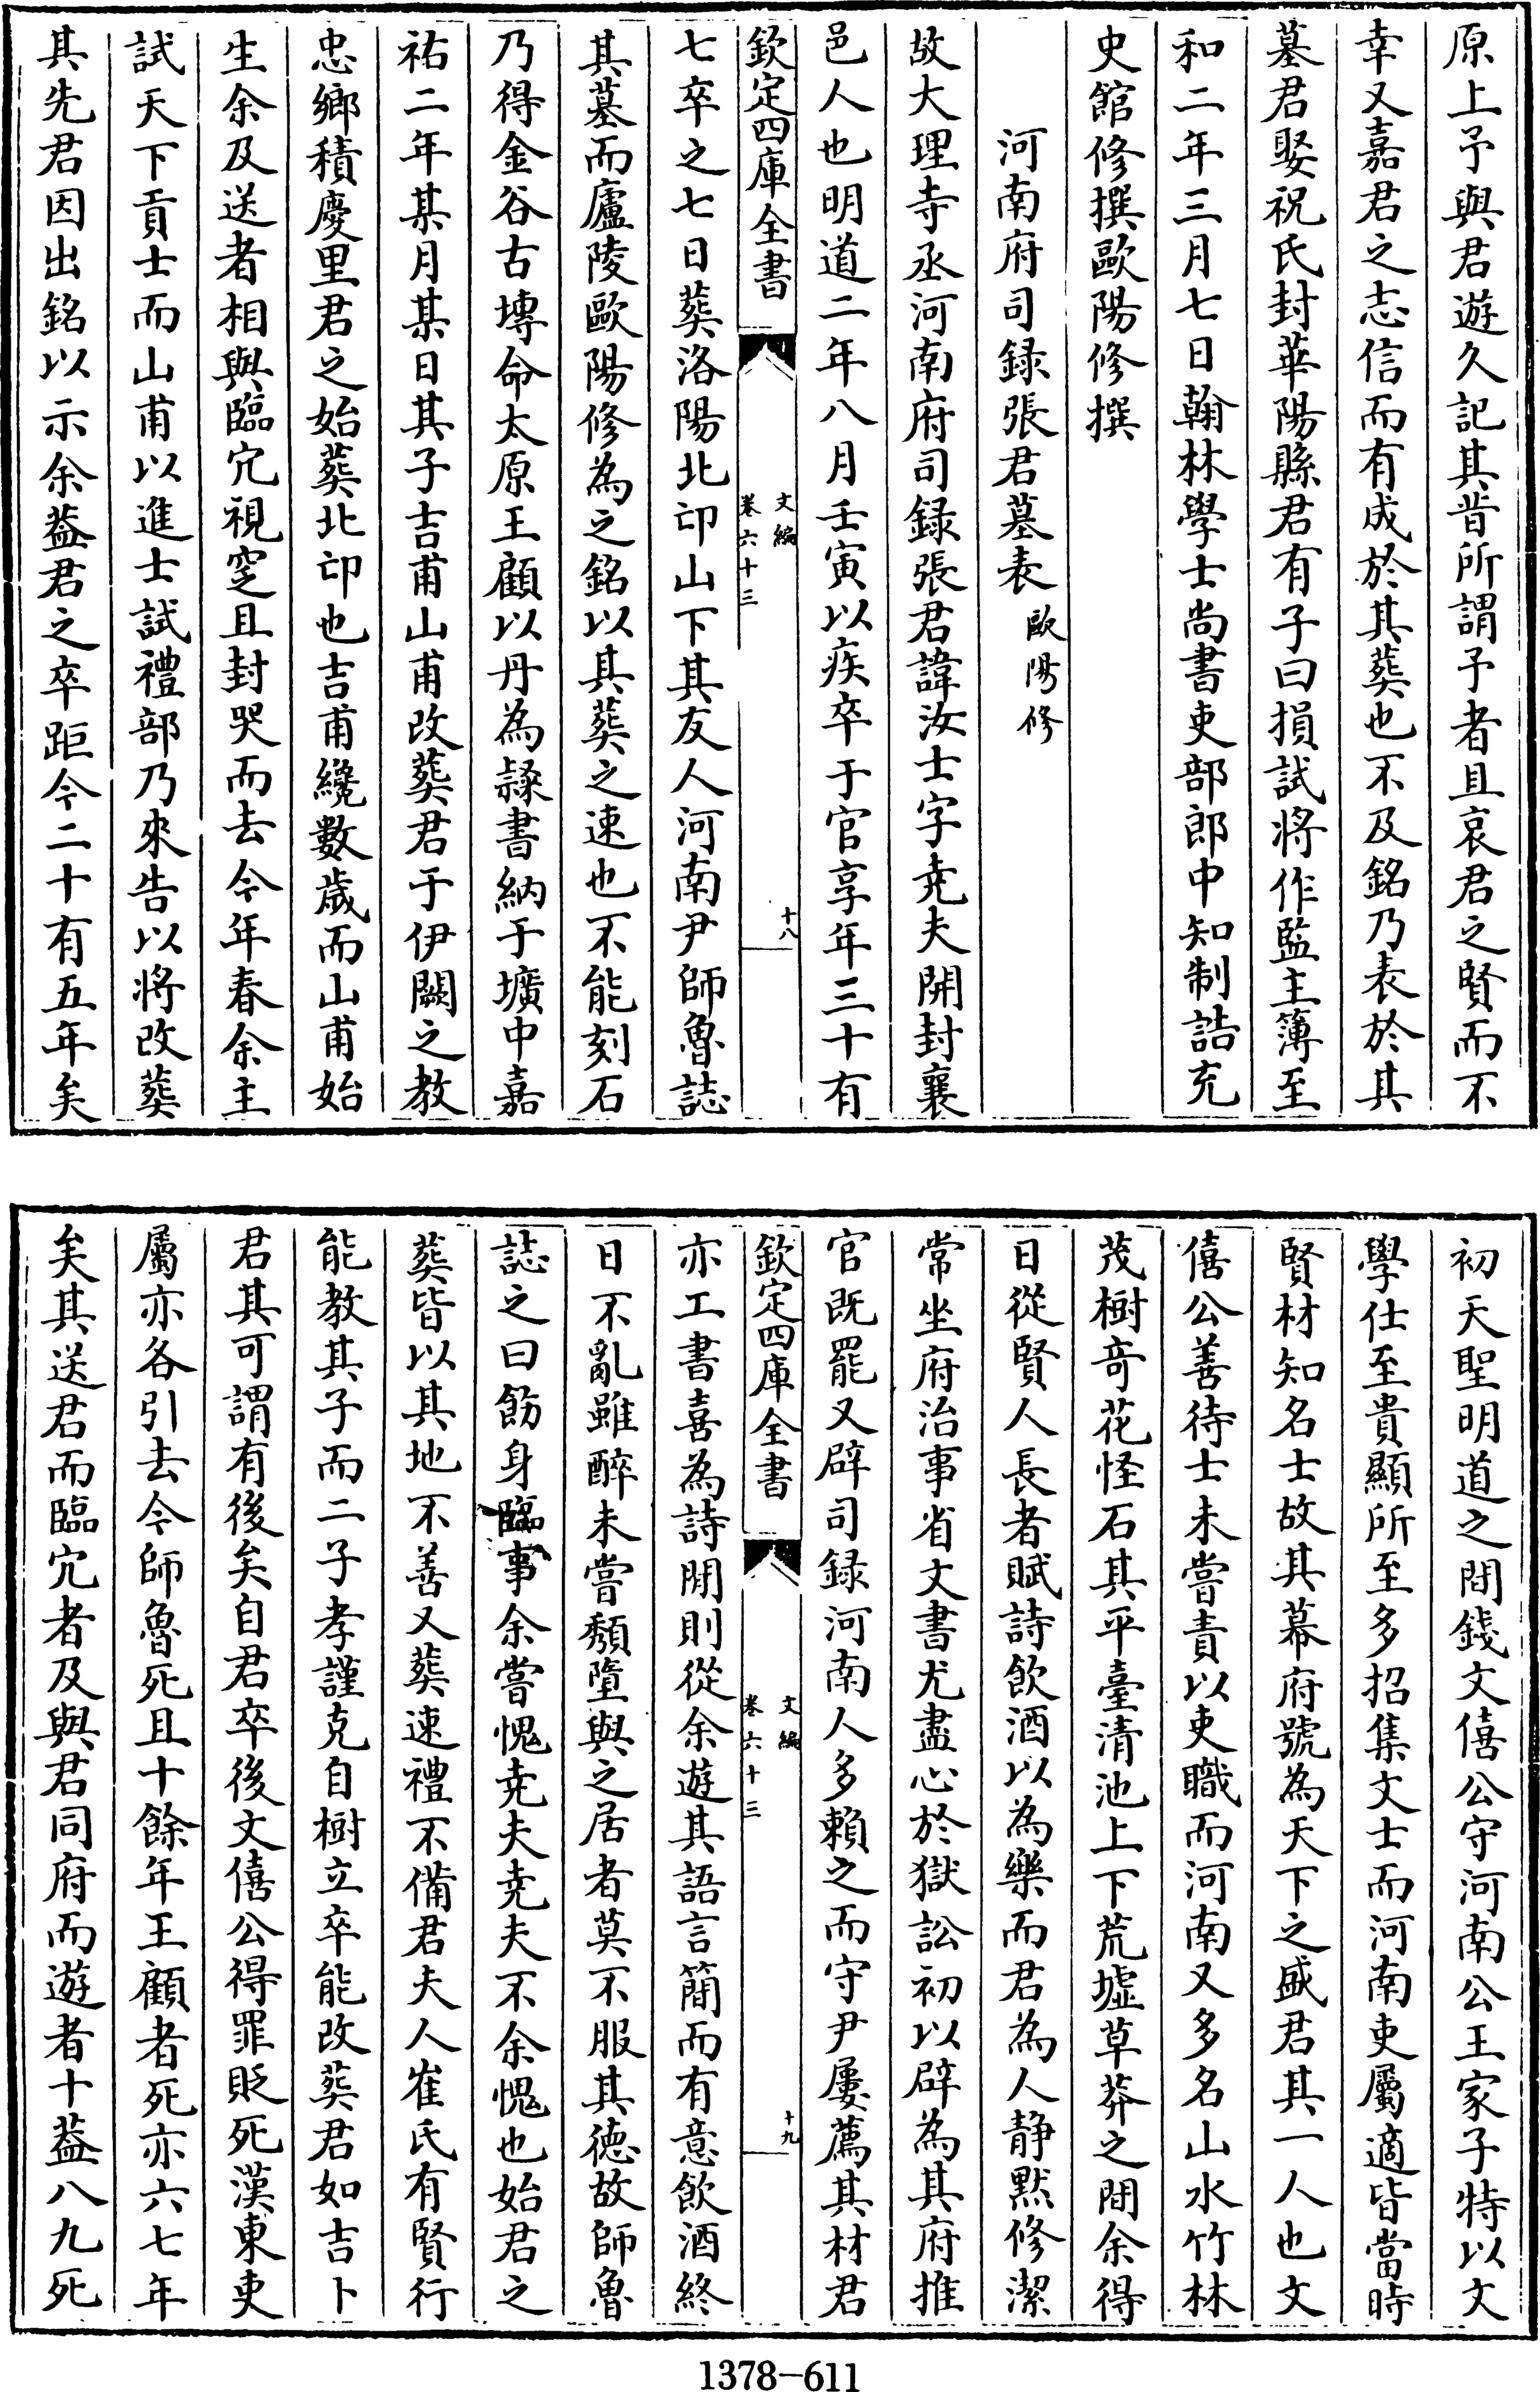 原上予與君遊久記其昔所謂予者且哀君之賢而不
幸又嘉君之志信而有成於其葬也不及銘乃表於其
墓君娶祝氏封華陽縣君有子曰損試將作監主簿至
和二年三月七日翰林學士尚書吏部郎中知制誥充
史館修撰歐陽修撰
河南府司録張君墓表 歐陽修
故大理寺丞河南府司録張君諱汝士字堯夫開封襄
邑人也明道二年八月壬寅以疾卒于官享年三十有
欽定四庫全書
文編
卷六十三
十八
七卒之七日葬洛陽北邙山下其友人河南尹師魯誌
其墓而廬陵歐陽修為之銘以其葬之速也不能刻石
乃得金谷古塼命太原王顧以丹為隸書納于壙中嘉
祐二年某月某日其子吉甫山甫改葬君于伊闕之教
忠鄉積慶里君之始葬北邙也吉甫纔數歳而山甫始
生余及送者相與臨穴視窆且封哭而去今年春余主
試天下貢士而山甫以進士試禮部乃來告以將改葬
其先君因出銘以示余葢君之卒距今二十有五年矣
初天聖明道之間錢文僖公守河南公王家子特以文
學仕至貴顯所至多招集文士而河南吏屬適皆當時
賢材知名士故其幕府號為天下之盛君其一人也文
僖公善待士未嘗責以吏職而河南又多名山水竹林
茂樹奇花怪石其平臺清池上下荒墟草莽之間余得
日從賢人長者賦詩飲酒以為樂而君為人靜黙修潔
常坐府治事省文書尤盡心於獄訟初以辟為其府推
官既罷又辟司録河南人多賴之而守尹屢薦其材君
欽定四庫全書
文編
卷六十三
十九
亦工書喜為詩閒則從余遊其語言簡而有意飲酒終
日不亂雖醉未嘗頽墮與之居者莫不服其徳故師魯
誌之曰飭身臨事余嘗愧堯夫堯夫不余愧也始君之
葬皆以其地不善又葬速禮不備君夫人崔氏有賢行
能教其子而二子孝謹克自樹立卒能改葬君如吉卜
君其可謂有後矣自君卒後文僖公得罪貶死漢東吏
屬亦各引去今師魯死且十餘年王顧者死亦六七年
矣其送君而臨穴者及與君同府而遊者十葢八九死
1378-611